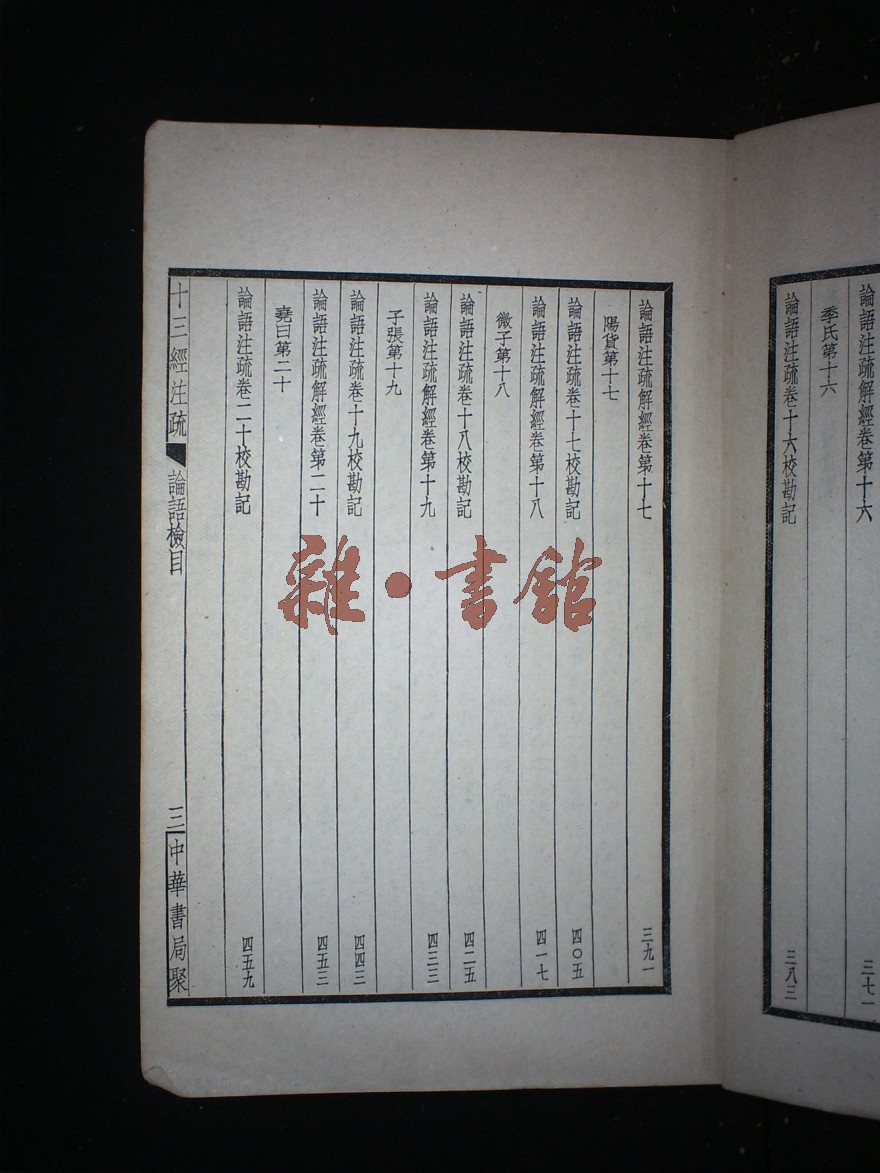 論語注疏解經卷第十六 三七一
季氏第十六
論語注疏卷十六校勘記 三八三
論語注疏解經卷第十七 三九一
陽貨第十七
論語注疏卷十七校勘記 四〇五
論語注疏解經卷第十八 四一七
微子第十八
論語注疏卷十八校勘記 四二五
論語注疏解經卷第十九 四三三
子張第十九
論語注疏卷十九校勘記 四四三
論語注疏解經卷第二十 四五三
堯曰第二十
論語注疏卷二十校勘記 四五九
十三經注疏 論語檢目 三 中華書局聚
雜·書館